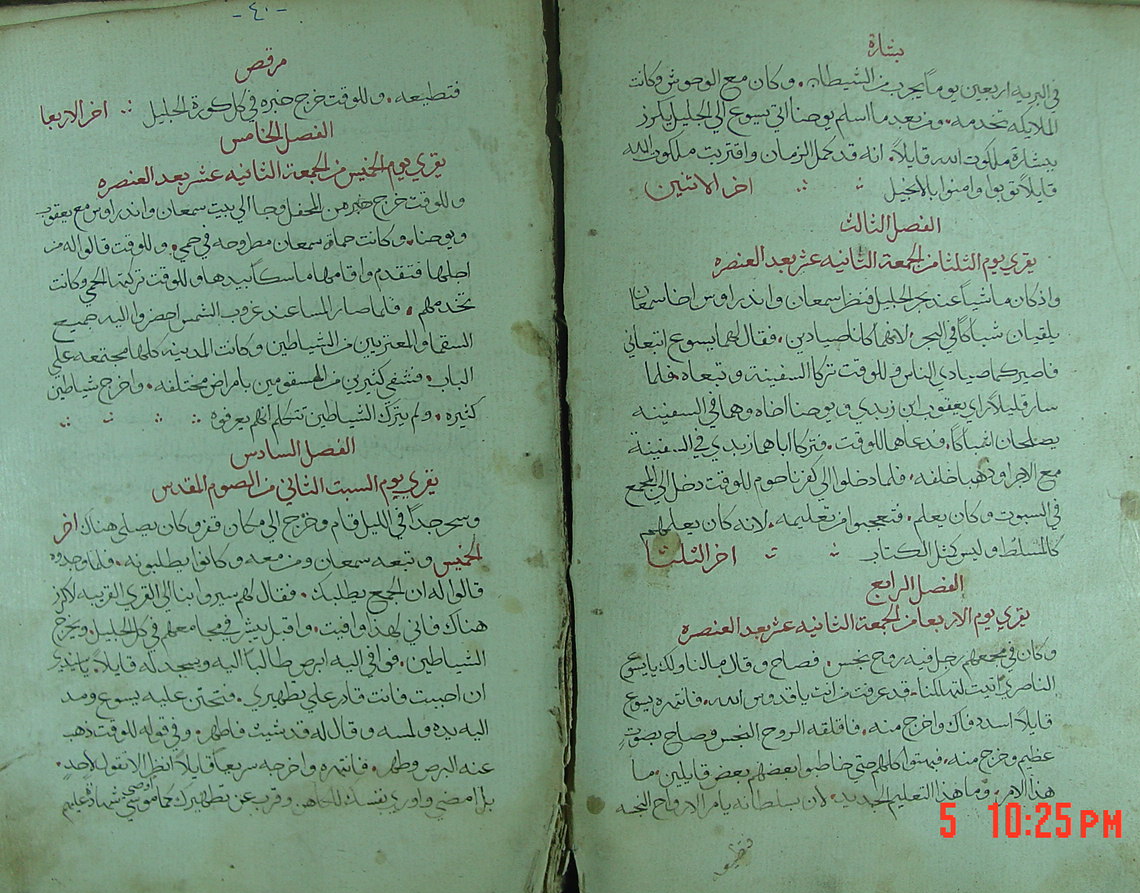 بشارة
في البريه اربعين يوماً يجرب من الشيطان. وكان مع الوحوش وكانت
الملايكه تخدمه. ومن بعد ما اسلم يوحنا اتي يسوع الي الجليل يكرز
ببشارة ملكوت الله قايلاً. انه قد كمل الزمان واقتربت ملكوت الله
قايلاً توبوا وامنوا بالانجيل اخر الاثنين
الفصل الثالث
يقري يوم الثلثا من الجمعة الثانيه عشر بعد العنصره
واذ كان ماشياً عند بحر الجليل فنظر سمعان واندراوس اخا سمعان
يلقيان شباكاً في البحر. لانهما كانا صيادين. فقال لهما يسوع اتبعاني
فاصيركما صيادي الناس وللوقت تركا السفينة وتبعاه. فلما
سار قليلاً راي يعقوب ابن زبدي ويوحنا اخاه وهما في السفينه
يصلحان الشباك. فدعاهما للوقت. فتركا اباهما زبدي في السفينة
مع الاجرا وذهبا خلفه. فلما دخلوا الي كفرناحوم للوقت دخل الي المجمع
في السبوت وكان يعلم. فتعجبوا من تعليمه. لانه كان يعلمهم
كالمسلط وليس كمثل الكتاب اخر الثلثا
الفصل الرابع
يقري يوم الاربعا من الجمعة الثانيه عشر بعد العنصره
وكان في مجمعهم رجل فيه روح نجس. فصاح وقال ما لنا ولك يا يسوع
الناصري اتيت لتهلكنا. قد عرفت من انت يا قدوس الله. فانتهره يسوع
قايلاً اسدد فاك واخرج منه. فاقلقه الروح النجس وصاح بصوتٍ
عظيم وخرج منه. فبهتوا كلهم حتي خاطبوا بعضهم بعض قايلين. ما
هذا الامر. وما هذا التعليم الجديد. لان بسلطانه يامر الارواح النجسه
فتطيعه
-٤٠-
مرقص
فتطيعه. وللوقت خرج خبره في كل كورة الجليل اخر الاربعا
الفصل الخامس
يقري يوم الخميس من الجمعة الثانيه عشر بعد العنصره
وللوقت خرج من المحفل وجا الي بيت سمعان واندراوس مع يعقوب
ويوحنا. وكانت حماة سمعان مطروحه في حمي. وللوقت قالوا له من
اجلها فتقدم واقامها ماسكاً بيدها وللوقت تركتها الحمي وكانت
تخدمهم. فلما صار المسا عند غروب الشمس احضروا اليه جميع
السقما والمعتريين من الشياطين وكانت المدينه كلها مجتمعه علي
الباب. فشفي كثيرين من المسقومين بامراض مختلفه. واخرج شياطين
كثيره. ولم يترك الشياطين تتكلم انهم يعرفوه
الفصل السادس
يقري يوم السبت الثاني من الصوم المقدس
وسحر جداً في الليل قام وخرج الي مكان قفر وكان يصلي هناك اخر
الخميس وتبعه سمعان ومن معه وكانوا يطلبونه. فلما وجدوه
قالوا له ان الجمع يطلبك. فقال لهم سيروا بنا الي القري القريبه لاكرز
هناك فاني لهذا وافيت. واقبل يبشر في مجامعهم في كل الجليل. ويخرج
الشياطين. فوافي اليه ابرص طالباً اليه ويسجد له قايلاً. يا سيدي
ان احببت فانت قادر علي تطهيري. فتحنن عليه يسوع ومد
اليه يده ولمسه وقال له قد شيت فاطهر. وفي قوله للوقت ذهب
عنه البرص وطهر. فانتهره واخرجه سريعاً قايلاً انظر الا تقول لاحدٍ.
بل امضي واوري نفسك للكاهن وقرب عن تطهيرك كما اوصي موسي شهادة عليهم
5 10:25 PM